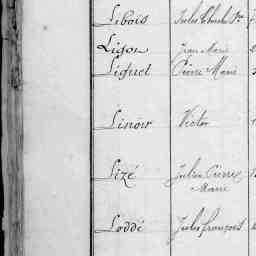 Lebois Jules
Ligou Jean Marie
Liguet Pierre Marie
Linoir Victor
Lizé Julien Pierre
Marie
Loddé Jules françois